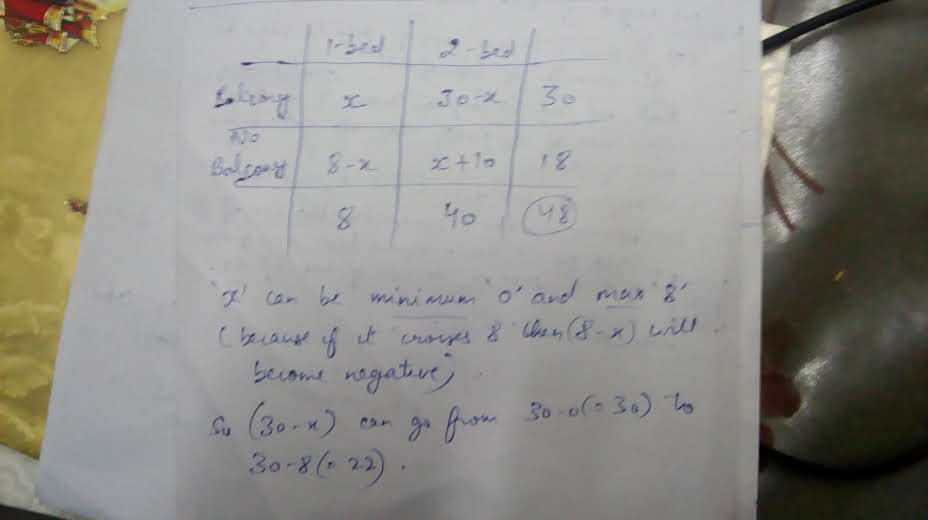 1-bed 2-bed
Balcony x 30-x 30
No
Balcony 8-x x+10 18
8 40 48
'x' can be minimum '0' and max '8'
(because if it crosses 8 then (8-x) will
become negative)
So (30-x) can go from 30-0(=30) to
30-8(=22).